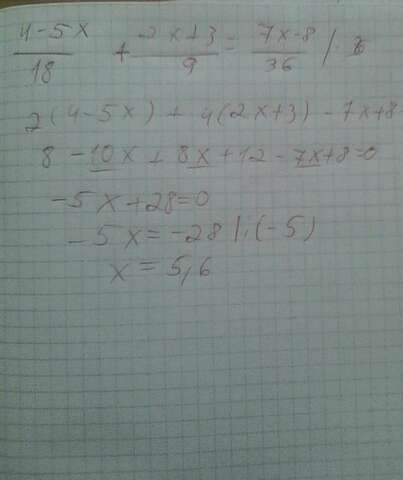 4-5x/18 + 2x+3/9 = 7x-8/36 /
2(4-5x) + 4(2x+3) - 7x+8
8 - 10x + 8x + 12 - 7x+8=0
-5x+28=0
-5x = -28 |:(-5)
x = 5,6